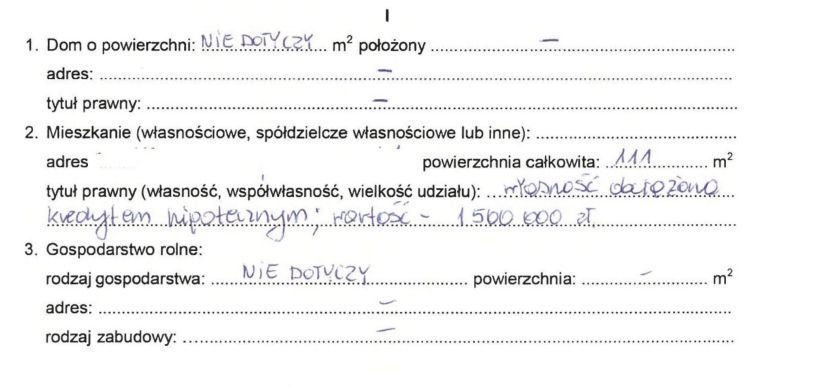 I
1. Dom o powierzchni: NIE DOTYCZY m² położony –
adres: –
tytuł prawny: –
2. Mieszkanie (własnościowe, spółdzielcze własnościowe lub inne):
adres powierzchnia całkowita: 111 m²
tytuł prawny (własność, współwłasność, wielkość udziału): własność obciążona
kredytem hipotecznym; wartość - 1 500 000 zł.
3. Gospodarstwo rolne:
rodzaj gospodarstwa: NIE DOTYCZY powierzchnia: – m²
adres: –
rodzaj zabudowy: –